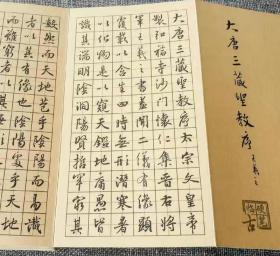 大唐三藏聖教序
王羲之
大唐三藏聖教序太宗文皇帝
製弘福寺沙門懷仁集晉右將
軍王羲之書蓋聞二儀有像顯
覆載以含生四時無形潛寒暑
以化物是以窺天鑑地庸愚皆
識其端明陰洞陽賢哲罕窮其
數然而天地苞乎陰陽而易識
者以其有像也陰陽處乎天地
而難窮者以其